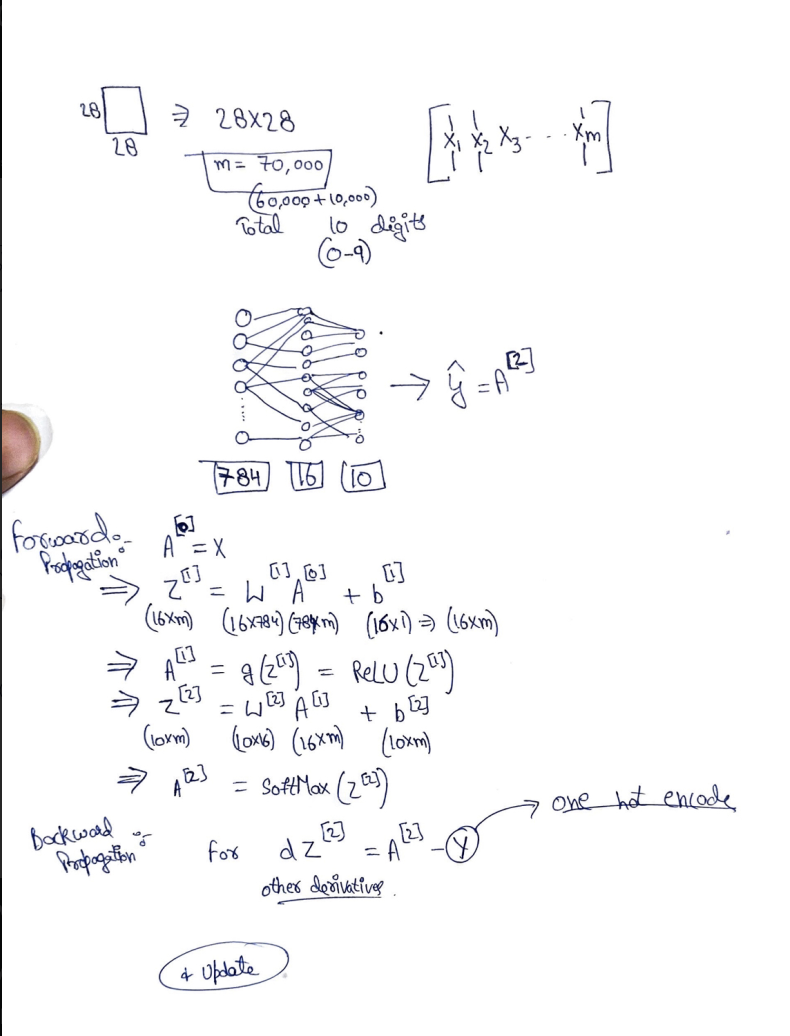 28 ⇒ 28×28
28
m = 70,000
(60,000 + 10,000)
Total 10 digits
(0-9)
[x₁ x₂ x₃ - - - - xm]
→ ŷ = A^[2]
784 16 10
Forward :-
Propagation
A^[0] = X
⇒ Z^[1] = W^[1] A^[0] + b^[1]
(16×m) (16×784) (784×m) (16×1) ⇒ (16×m)
⇒ A^[1] = g(Z^[1]) = ReLU(Z^[1])
⇒ Z^[2] = W^[2] A^[1] + b^[2]
(10×m) (10×16) (16×m) (10×m)
⇒ A^[2] = SoftMax(Z^[2])
Backward :-
Propagation
for dZ^[2] = A^[2] - Y → one hot encode
other derivatives.
& Update